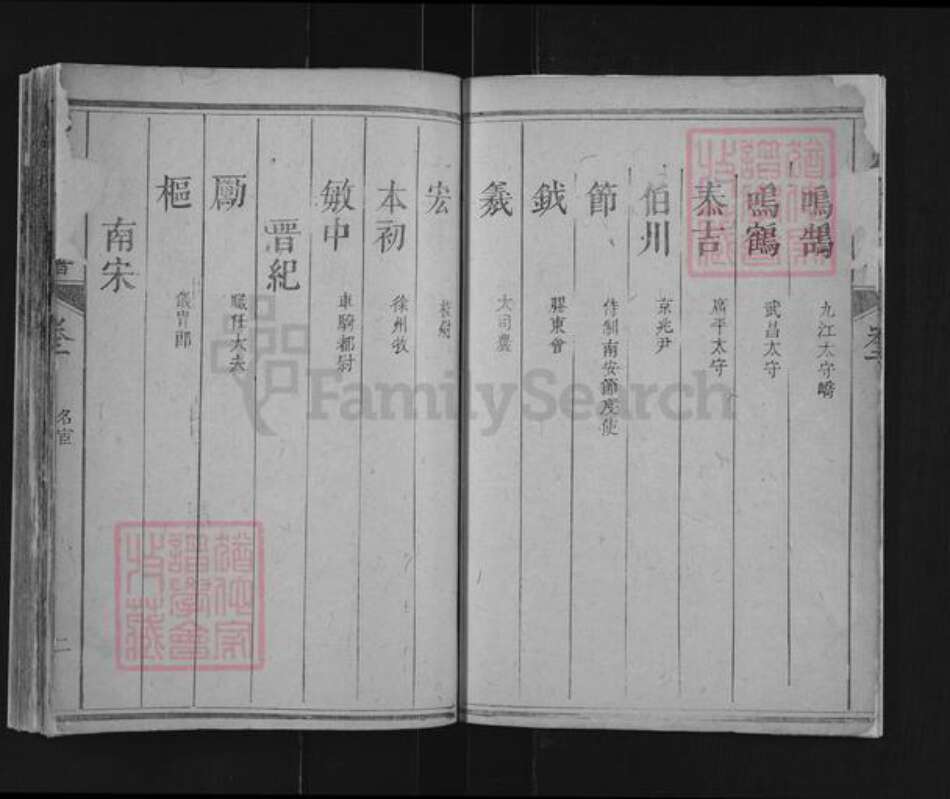 鳴鵠 九江太守
鳴鶴 武昌太守
泰吉 廣平太守
伯州 京兆尹
節 侍制南安節度使
鉞 膠東會
義 太司農
宏 校尉
本初 徐州牧
敏中 車騎都尉
晋紀
勵 職任大夫
樞 議曹郎
南宋
卷一 名宦 二
FamilySearch